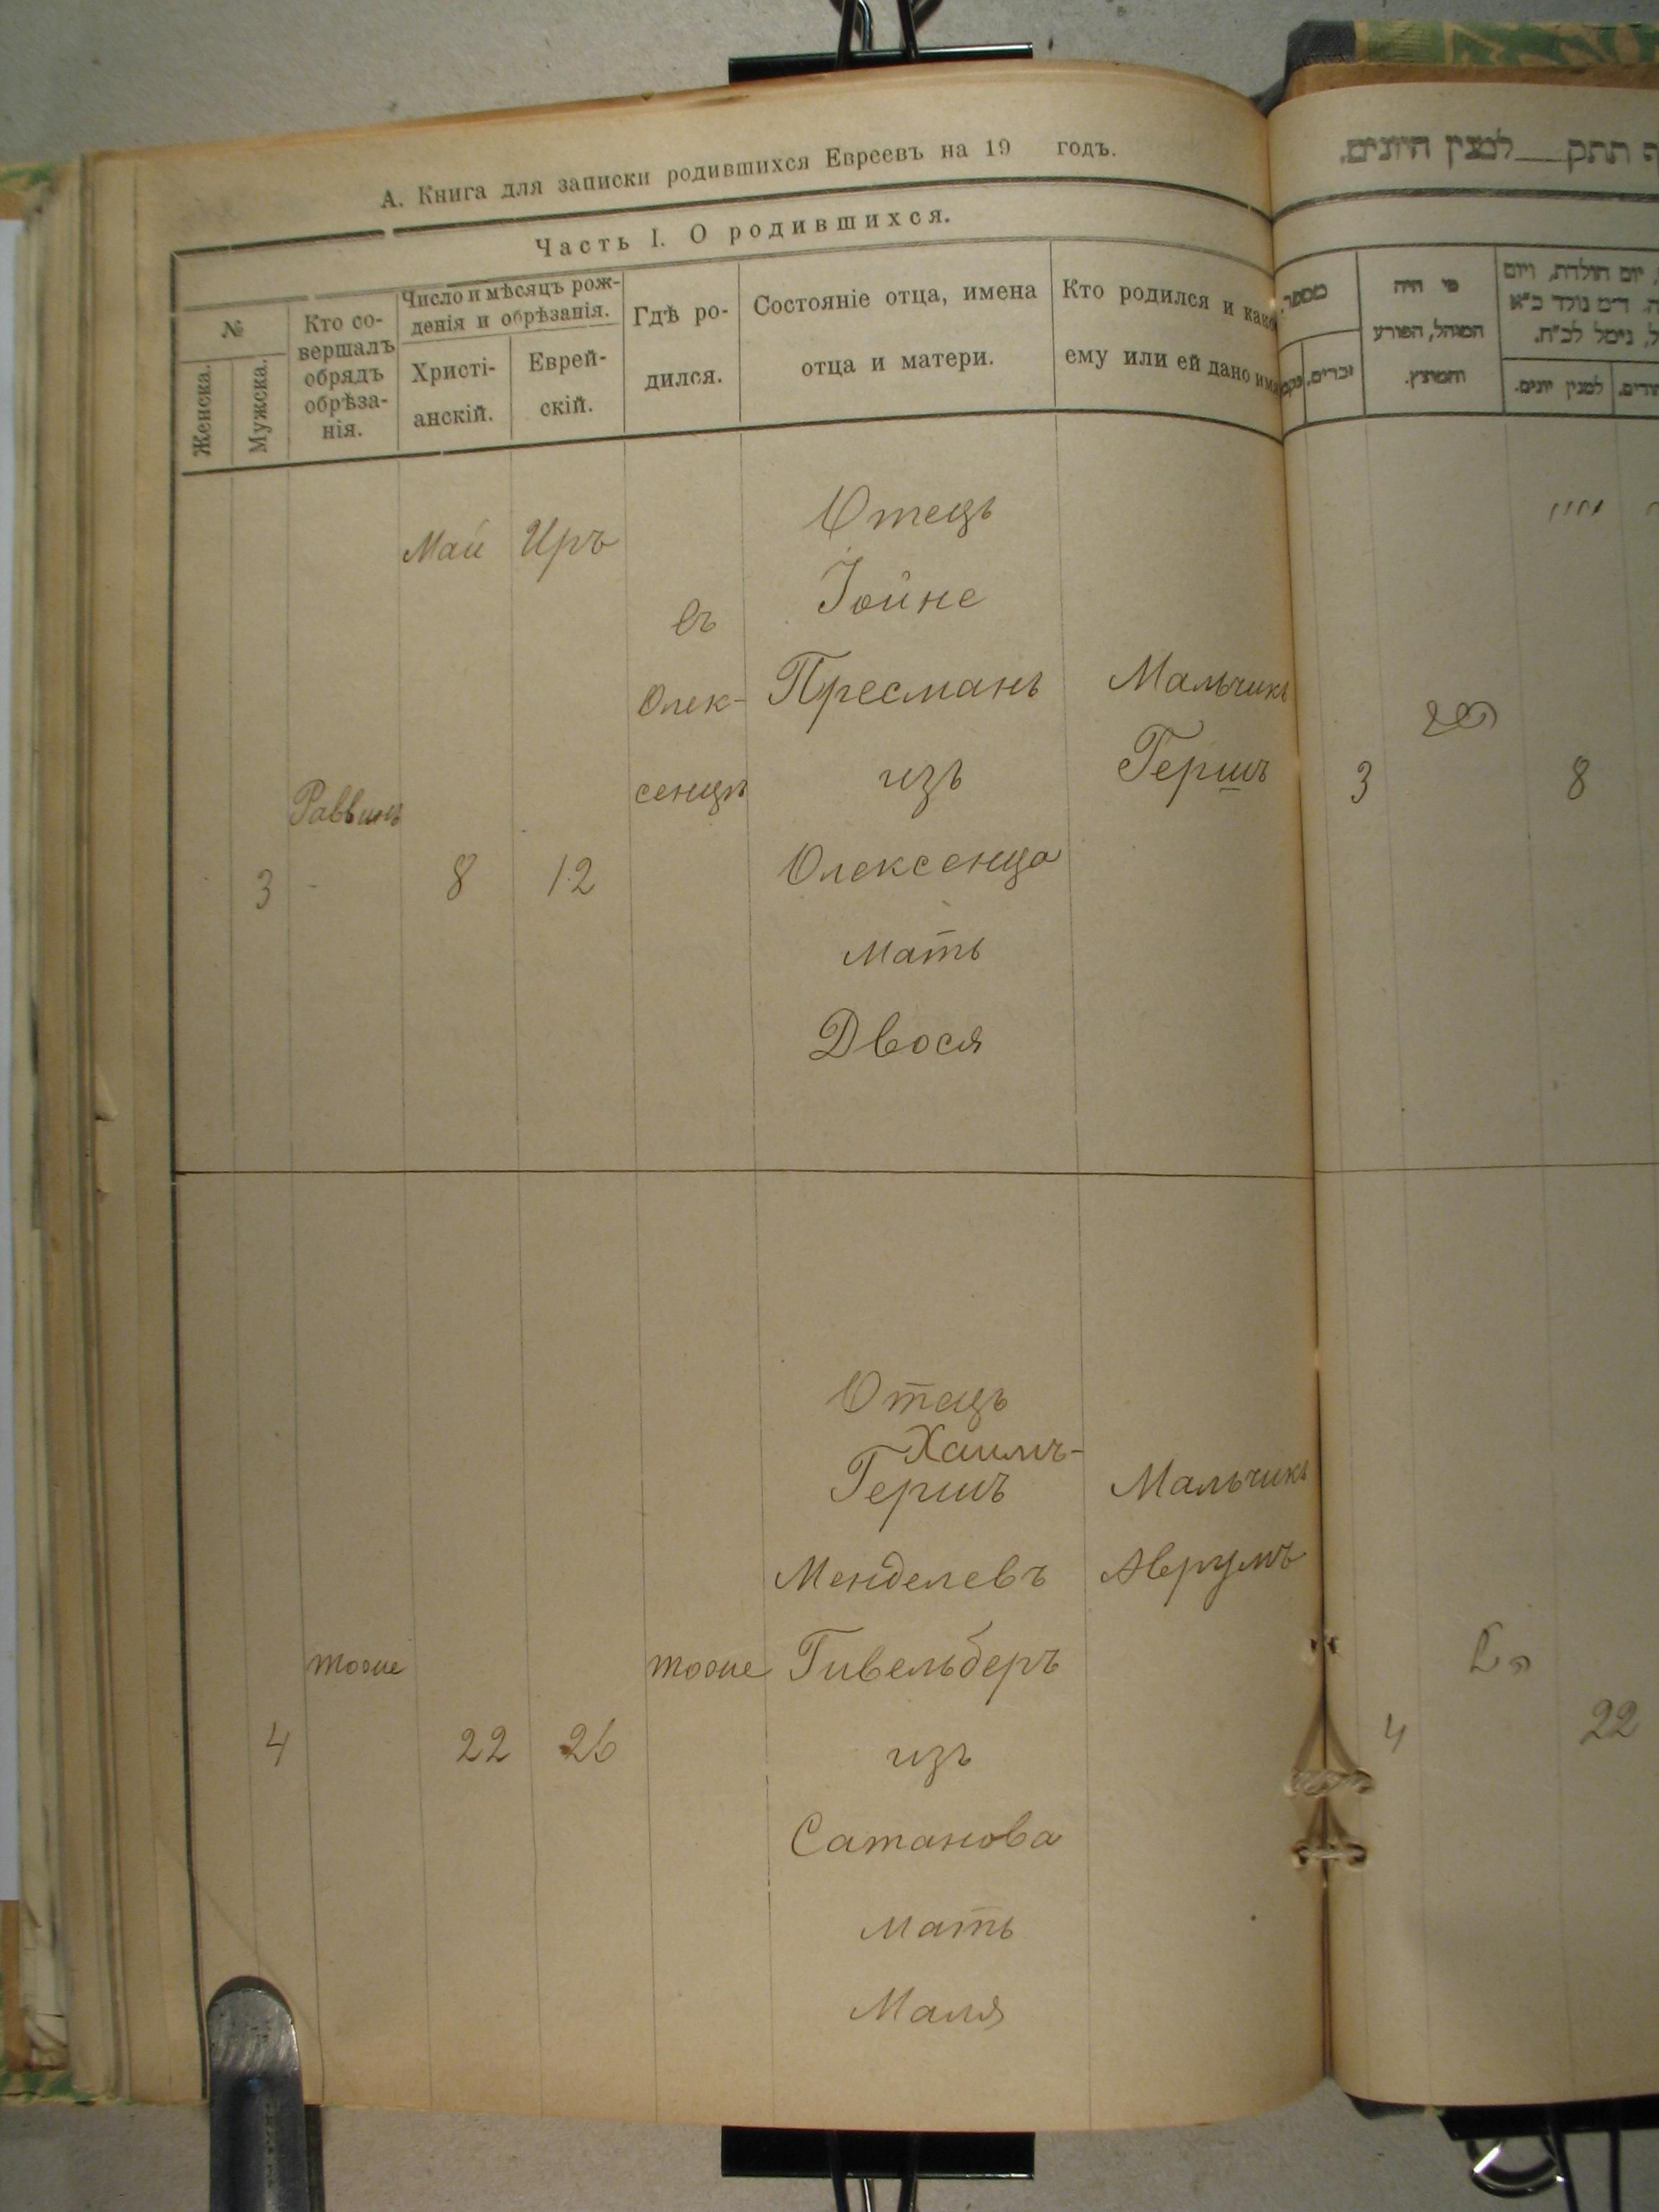 А. Книга для записки родившихся Евреевъ на 19 годъ.
Часть I. О родившихся.
№
Женска.
Мужска.
Кто со-
вершалъ
обрядъ
обрѣза-
нія.
Число и мѣсяцъ рож-
денія и обрѣзанія.
Христі-
анскій.
Еврей-
скій.
Гдѣ ро-
дился.
Состояніе отца, имена
отца и матери.
Кто родился и како
ему или ей дано има
Май Иръ
3
Раввинъ
8 12
въ
Олек-
сенцѣ
Отецъ
Іойне
Пресманъ
изъ
Олексенца
Мать
Двося
Мальчикъ
Гершъ
4
тоже
22 26
тоже
Отецъ
Хаимъ-
Гершъ
Менделевъ
Гивельберъ
изъ
Сатанова
Мать
Маля
Мальчикъ
Аврумъ
תתק לමנין היונים.
מספר
זכרים.
מי היה
המוהל, הפורע
והמוצץ.
יום הולדת, ויום
למנין יונים.
3
8
4
22